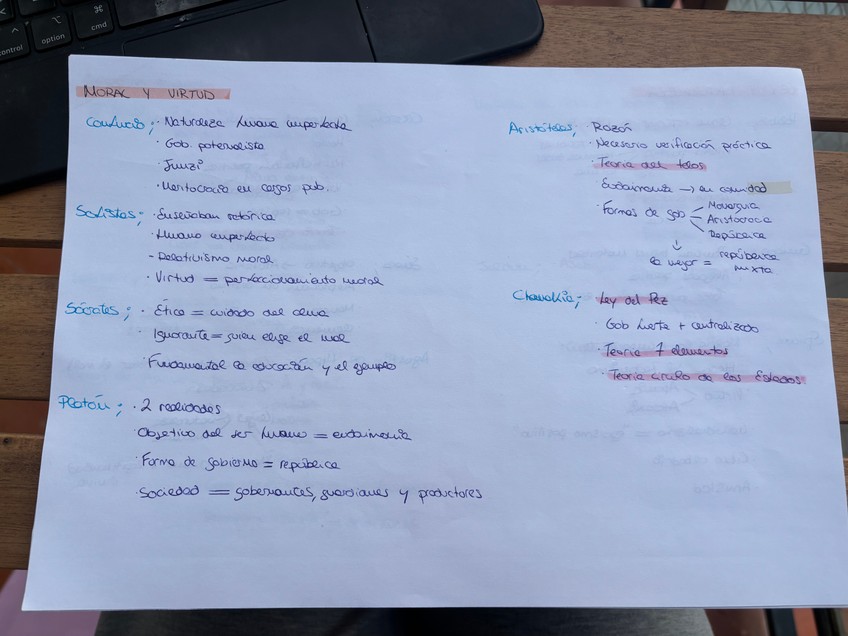 MORAL Y VIRTUD
Confucio; · Naturaleza humana imperfecta
· Gob. paternalista
· Junzi
· Meritocracia en cargos pub.
Sofistas; · Enseñaban retórica
· Humano imperfecto
- Relativismo moral
· Virtud = perfeccionamiento moral
Sócrates; · Ética = cuidado del alma
· Ignorante = quien elige el mal
· Fundamental la educación y el ejemplo
Platón; · 2 realidades
· Objetivo del ser humano = eudaimonía
· Forma de gobierno = república
· Sociedad = gobernantes, guardianes y productores
Aristóteles; Razón
· Necesario verificación práctica
· Teoría del telos
Eudaimonia → en comunidad
· Formas de gob
Monarquía
Aristocracia
República
↓
la mejor = república
mixta
Chanakia; · Ley del Pez
· Gob fuerte + centralizado
· Teoría 7 elementos
· Teoría círculo de los Estados
control
option
cmd
⌘